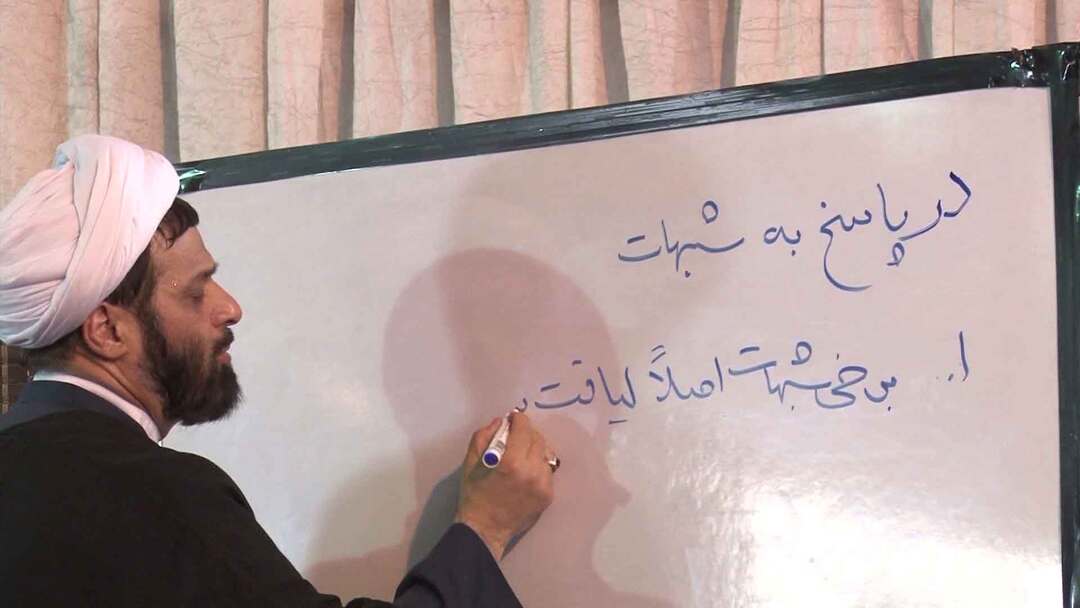 در پاسخ به شبهات
۱. برخی شبهات اصلاً لیاقت